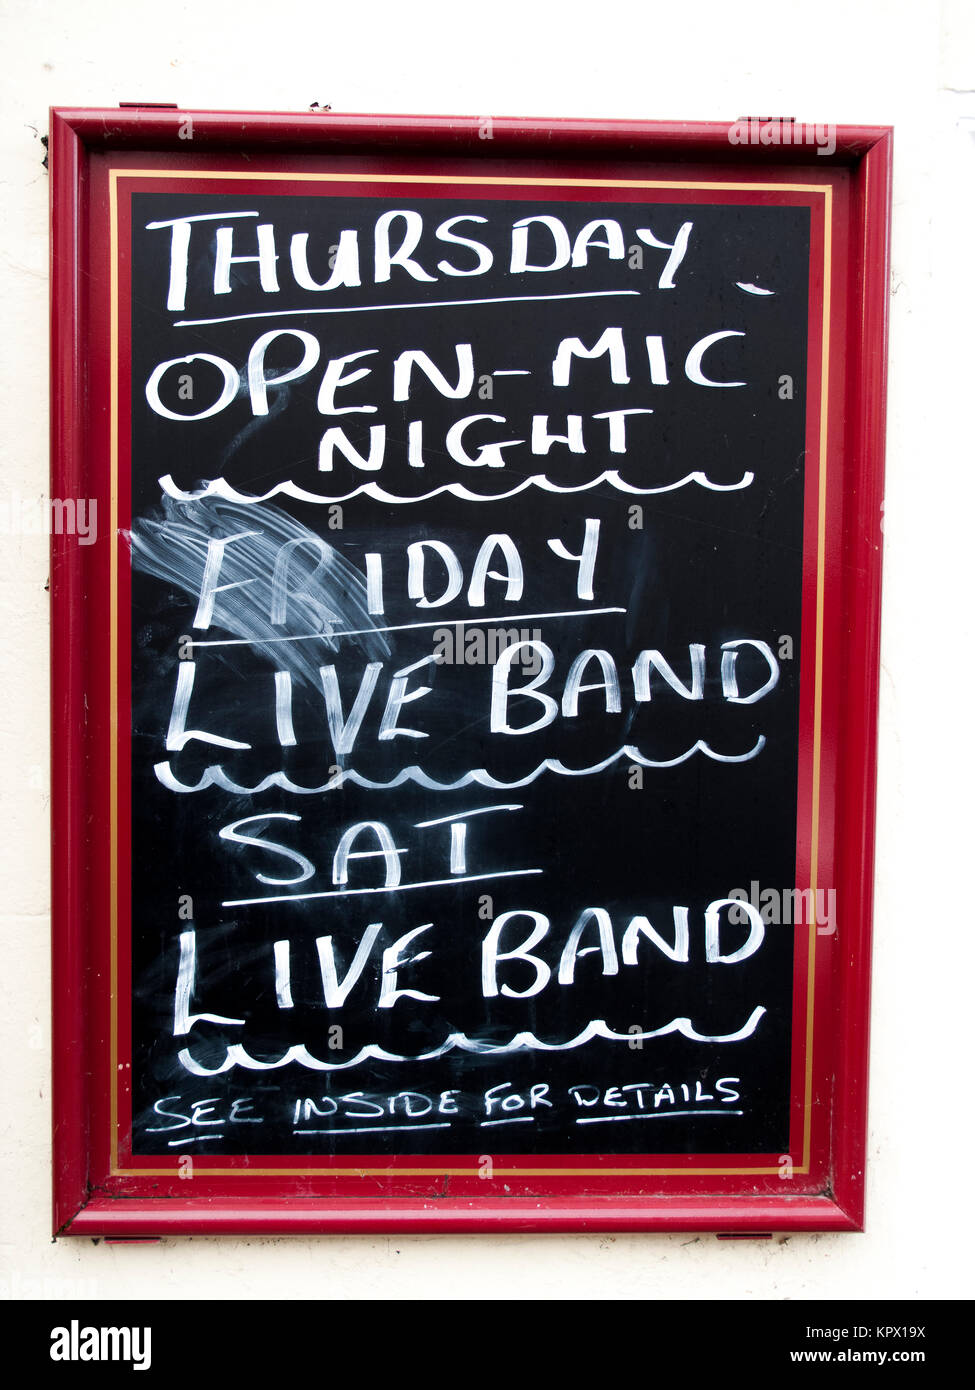 THURSDAY
OPEN-MIC
NIGHT
FRIDAY
LIVE BAND
SAT
LIVE BAND
SEE INSIDE FOR DETAILS
alamy
Image ID: KPX19X
www.alamy.com